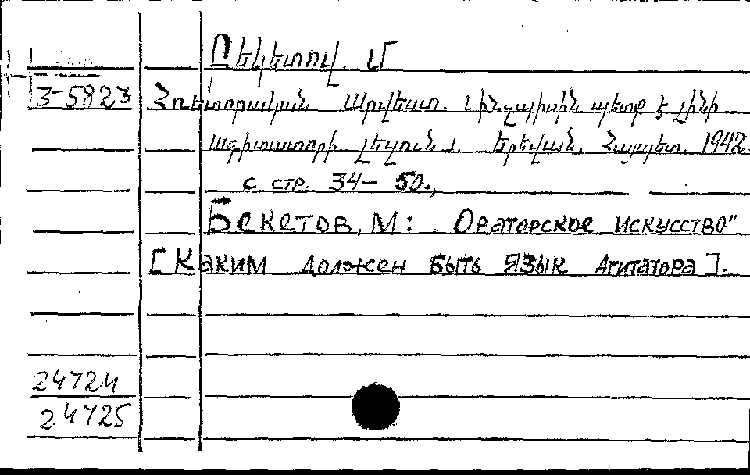 Բեկետով. Մ
3-5827 Հռետորական Արվեստ. Ինչպիսին պետք է լինի
Ագիտատորի լեզուն. Երևան, Հայպետ. 1942.
с стр. 34-50.,
Бекетов, М: Ораторское искусство"
[Каким должен быть язык агитатора].
24724
24725